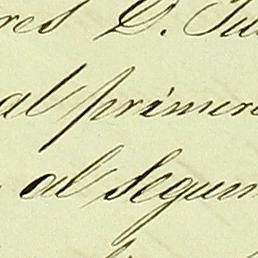 res D. Ju
al primer
al segun